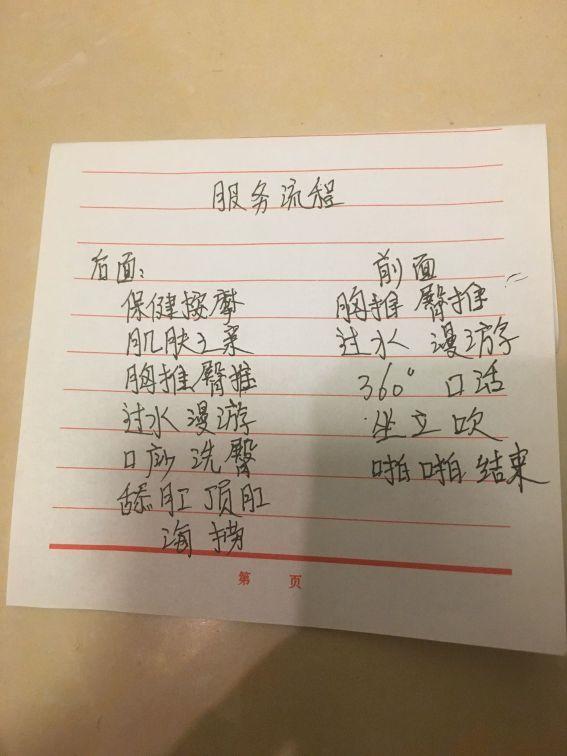 服务流程
后面：
保健按摩
肌肤之柔
胸推臀推
过水漫游
口沙洗臀
舔肛顶肛
海捞
前面
胸推臀推
过水漫游
360°口活
坐立吹
啪啪结束
第 页